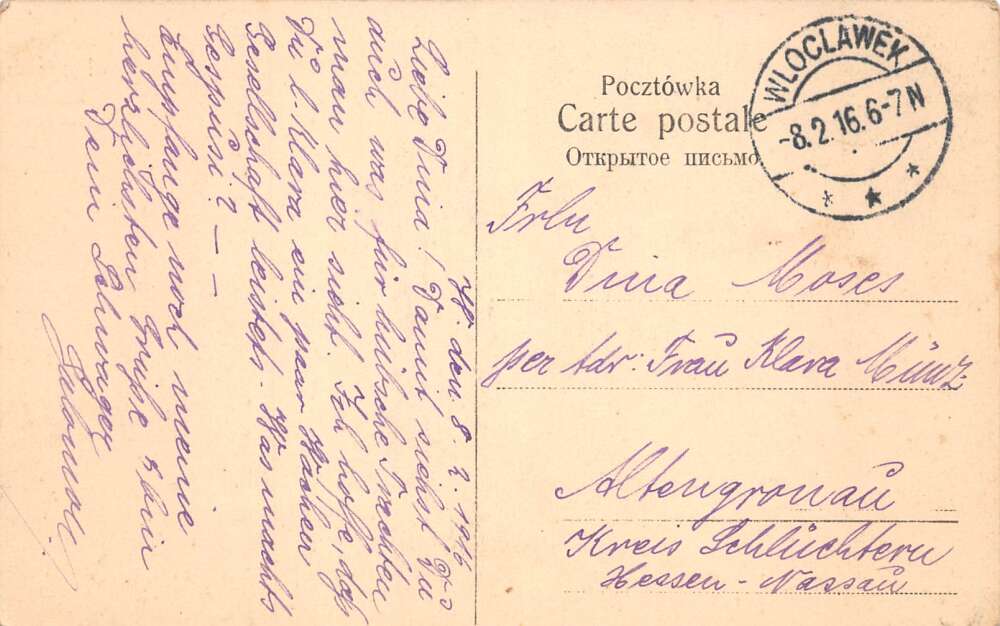 W. den 8.2.1916
Liebe Dina! Damit siehst Du
auch was für hübsche Sachen
man hier sieht. Ich hoffe, daß
Du l. Klara ein paar Wochen
Gesellschaft leistest. Was macht
Empfange noch meine
herzlichsten Grüße & bin
Dein Schwager
Pocztówka
Carte postale
Открытое письмо
WLOCLAWEK
-8.2.16.6-7N
Frln
Dina Moses
per Adr. Frau Klara Münz
Altengronau
Kreis Schlüchtern
Hessen-Nassau